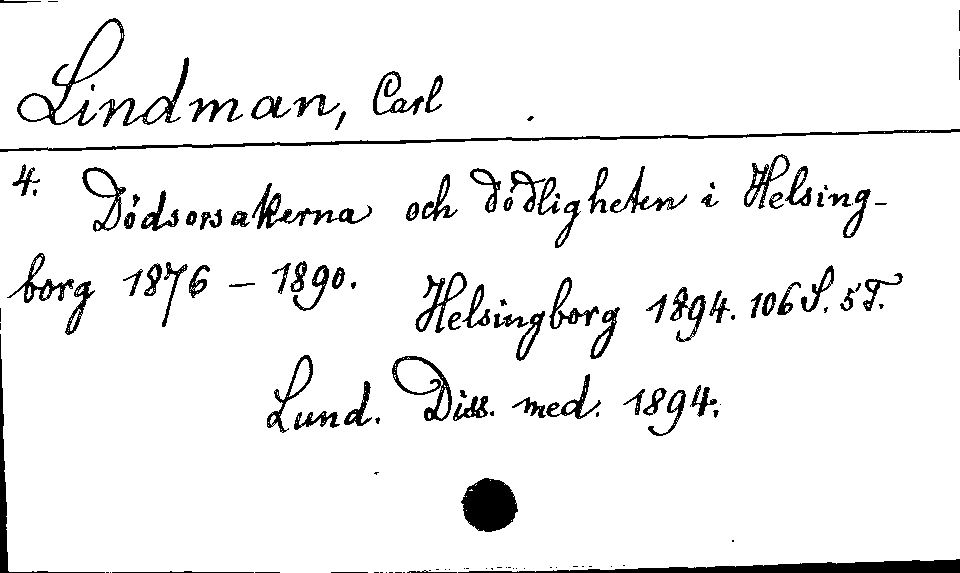 Lindman, Carl
4. Dödsorsakerna och dödligheten i Helsing-
borg 1876 – 1890. Helsingborg 1894. 106 S. 5 T.
Lund. Diss. med. 1894.